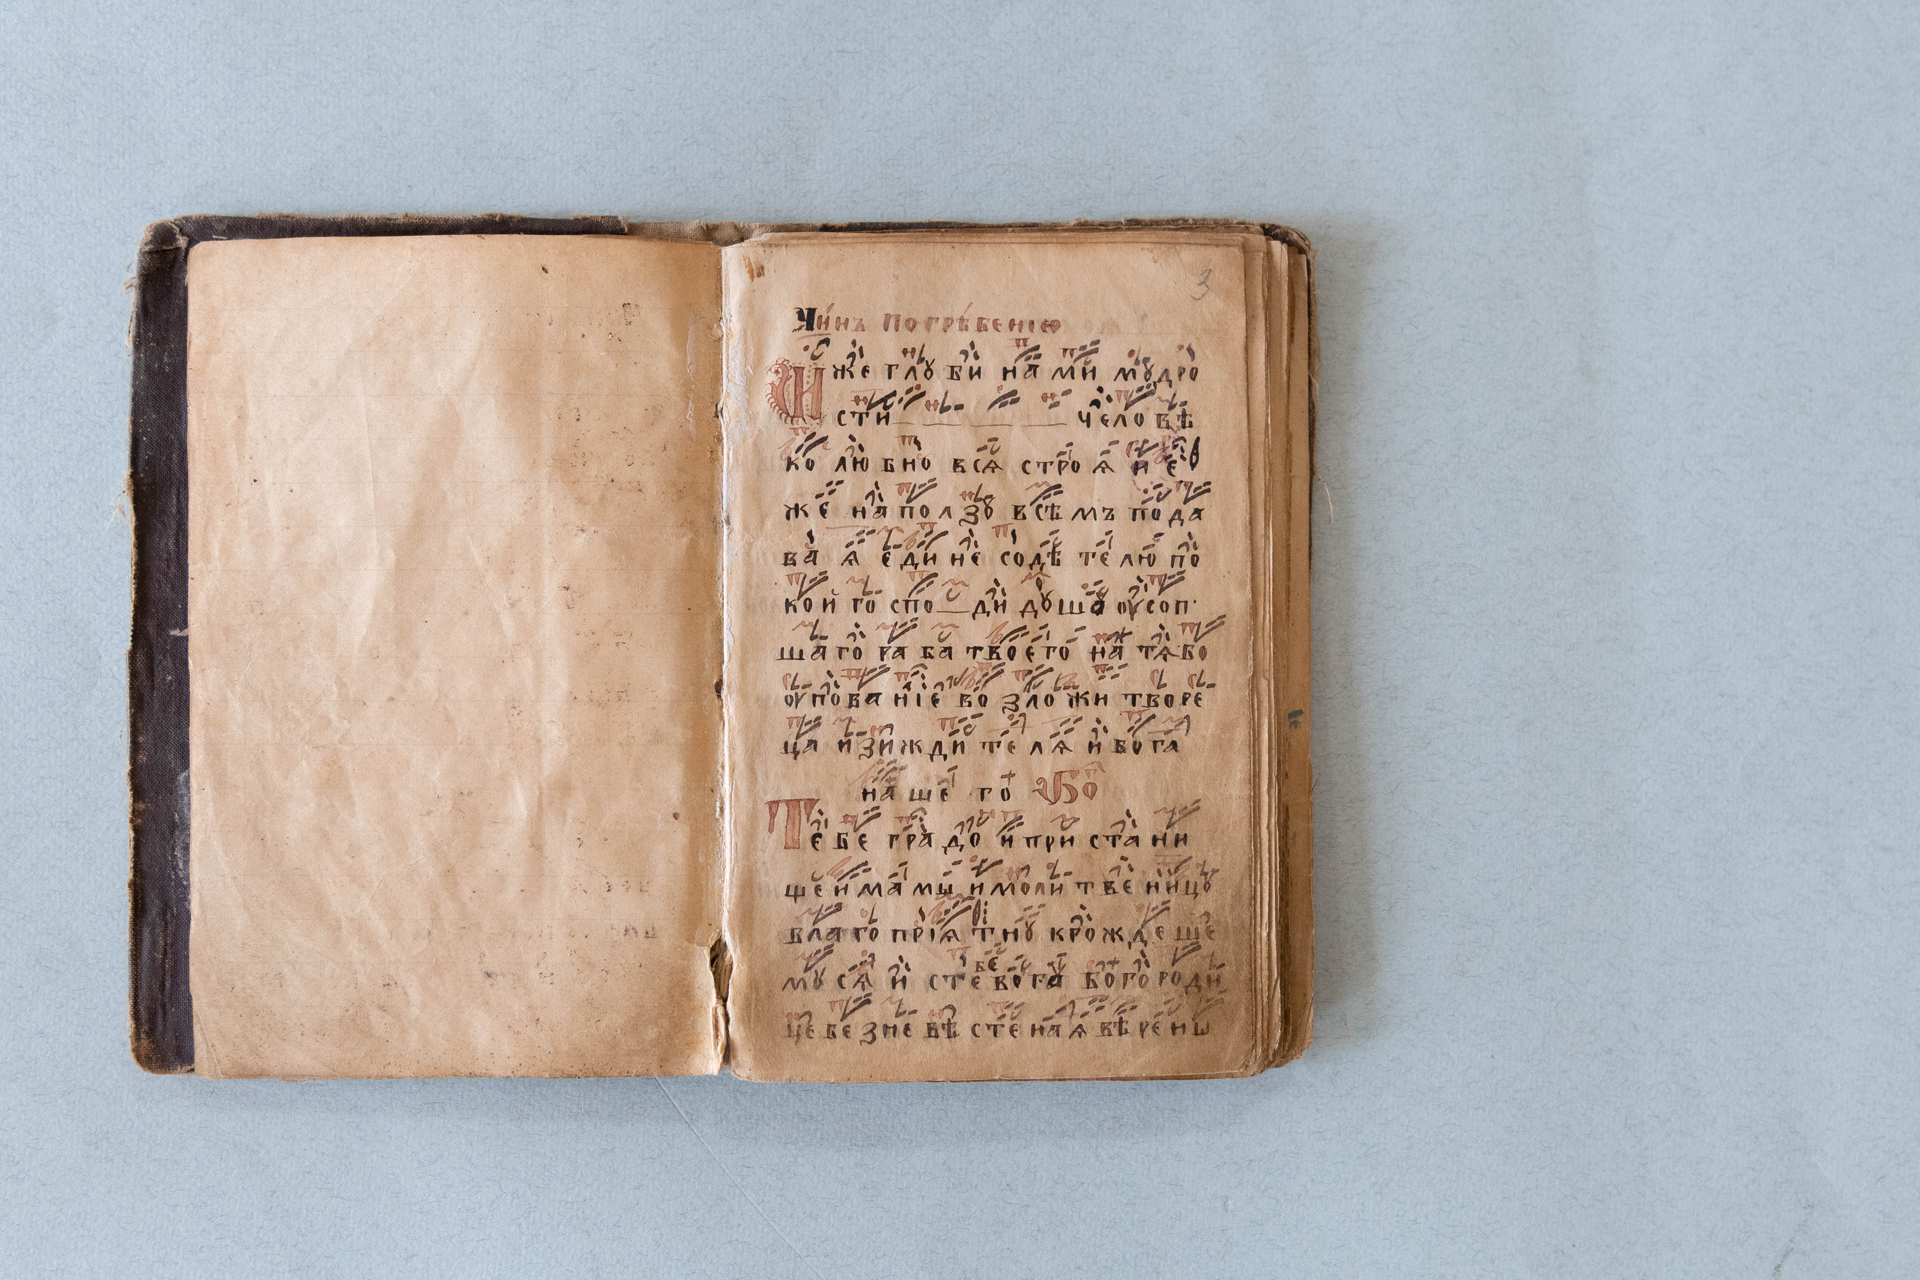 3
Чи́нъ погрѣбенїю
Иже глꙋби на ми мꙋдро
сти чело вѣ
ко лю бно вся стро ѧ и е
же на пол зꙋ всѣмъ по да
ва ѧ е ди не содѣ те лю по
кой го спо ди дꙋша оусоп
ша го ра ба твоего на тѧ бо
оупова нїе во зло жи творе
ца и зи жди те лѧ и бога
на ше го
Те бе гра до и при ста ни
ще и ма мы и моли тве ни цꙋ
благо прїѧ тнꙋ к рож де ше
мꙋ сѧ и с те бе бо га бого роди
це бе зне вѣ сте на ѧ вѣ ре ны